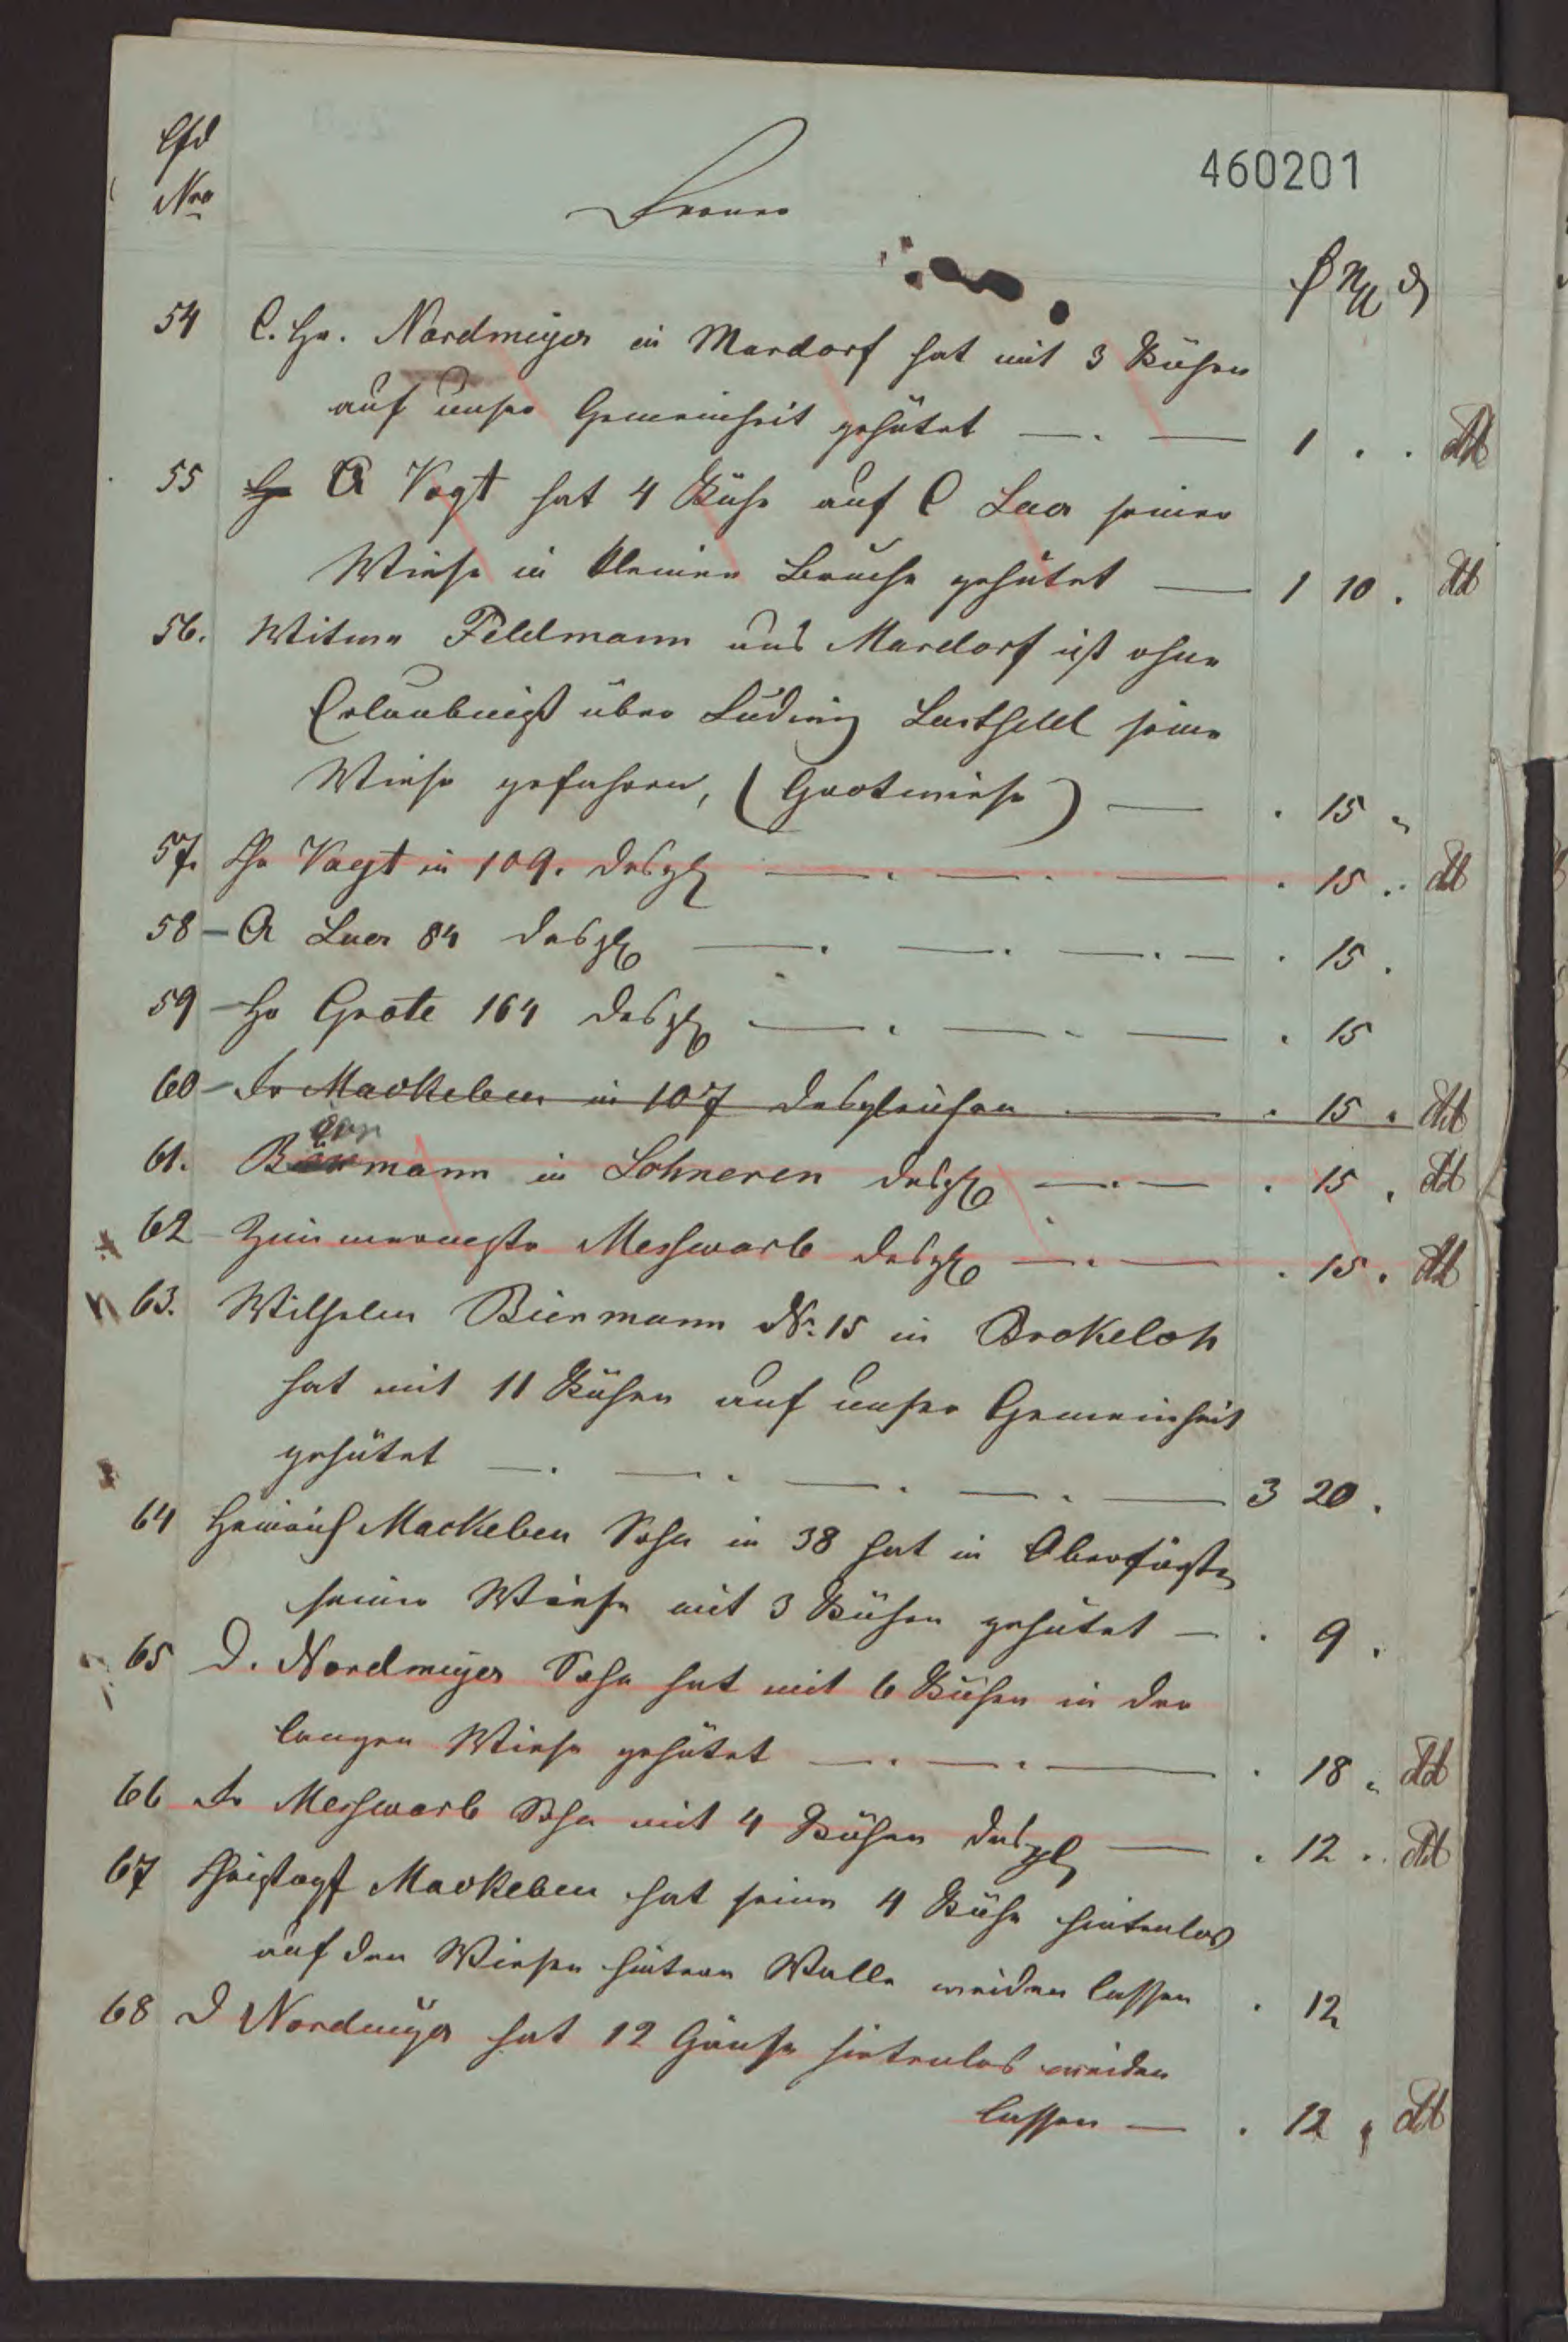 460201
Lfd
Nro
Ferner
₰ Ngr ₰
54 C. Hr. Nordmeyer in Mardorf hat mit 3 Kühen
auf unser Gemeinheit gehütet — . — 1 . . dd
55 A Vogt hat 4 Kühe auf C Laer seiner
Wiese in kleinen Bruche gehütet — 1 10 . dd
56. Witwe Feldmann aus Mardorf ist ohne
Erlaubniß über Ludwig seine
Wiese gefahren, (Grotwiese) — . 15 "
57. Chr Vogt in 109. desgl — . — . — . 15 . dd
58 – A Laer 84 desgl — . — . — . — . 15 .
59 – Hr Grote 164 desgl — . — . — . 15
60 – Fr Mackeben in 107 desgleichen — . 15 . dd
61. Biermann in desgl — . — . 15 . dd
62 Messwarb desgl — . — . 15 . dd
63. Wilhelm Biermann No. 15 in Brokeloh
hat mit 11 Kühen auf unser Gemeinheit
gehütet — . — . — . — . — 3 20 .
64 Heinrich Mackeben Sohn in 38 hat in
seiner Wiese mit 3 Kühen gehütet — . 9 .
65 D. Nordmeyer Sohn hat mit 6 Kühen in der
langen Wiese gehütet — . — . — . 18 . dd
66 Fr Messwarb Sohn mit 4 Kühen desgl — . 12 . dd
67 Christoph Mackeben hat seine 4 Kühe hirtenlos
auf den Wiesen hintern Walle weiden lassen . 12
68 D Nordmeyer hat 12 Gänse hirtenlos weiden
lassen — . 12 . dd